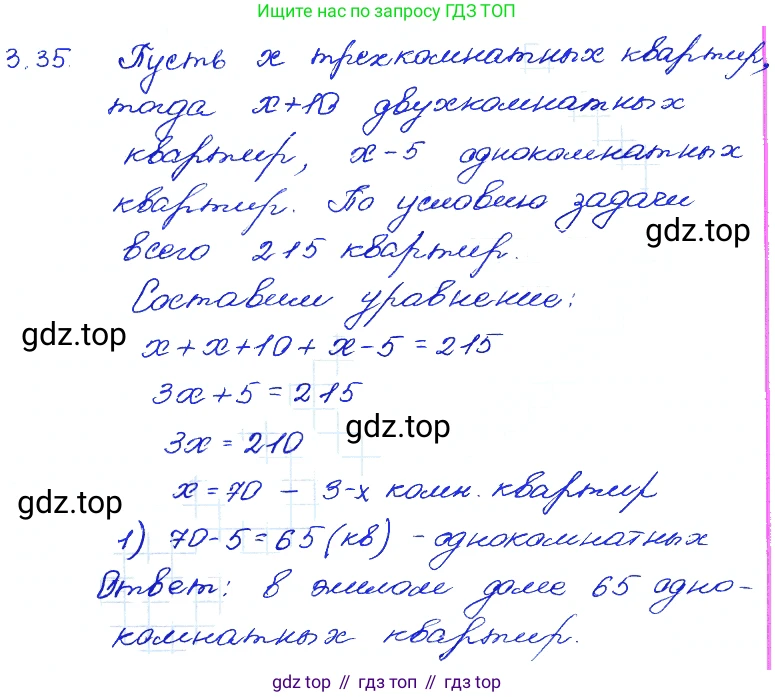 Ищите нас по запросу ГДЗ ТОП
3.35. Пусть х трехкомнатных квартир,
тогда х+10 двухкомнатных
квартир, х-5 однокомнатных
квартир. По условию задачи
всего 215 квартир.
gdz.top
Составим уравнение:
gdz.top
х+х+10+х-5=215
3х+5=215
gdz.top
3х=210
х=70 - 3-х комн. квартир
gdz.top
1) 70-5=65(кв) - однокомнатных
Ответ: в жилом доме 65 одно-
комнатных квартир.
gdz top // гдз топ // gdz top